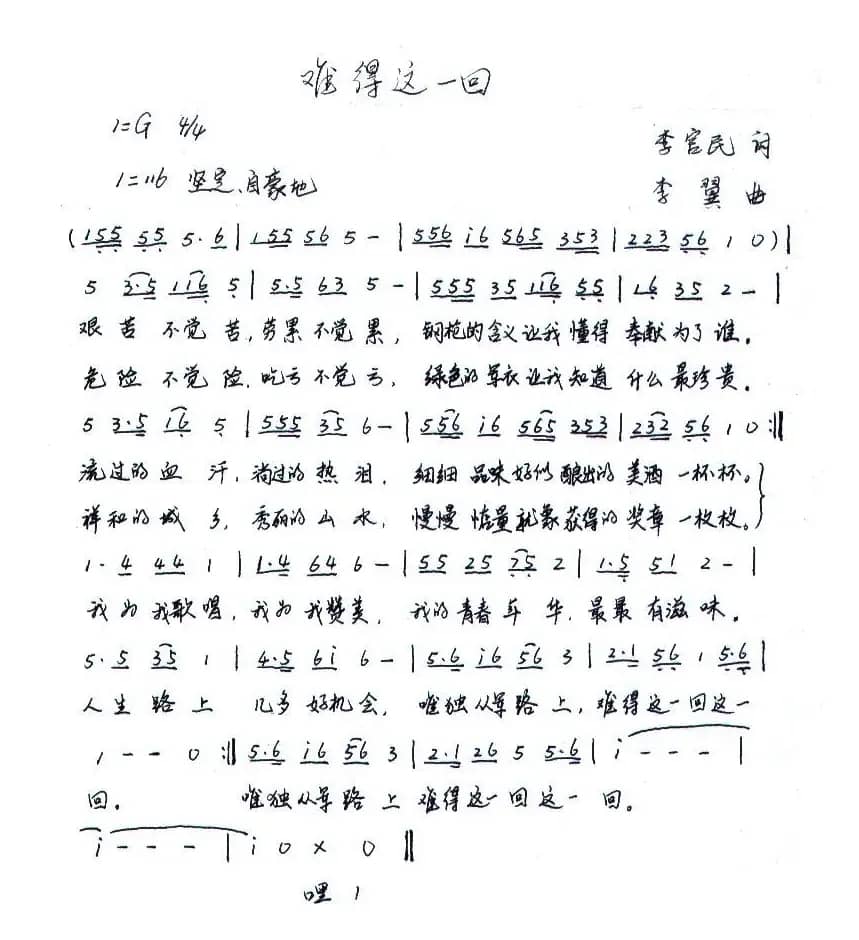 难得这一回
1=G 4/4
李官民 词
1=116 坚定、自豪地
李翼 曲
(155 55 5·6|155 56 5 -|556 i6 565 353|223 56 1 0)|
5 3·5 116 5|5·5 63 5 -|555 35 116 55|16 35 2 -|
艰苦 不觉苦,劳累不觉累, 钢枪的含义让我懂得 奉献为了谁。
危险 不觉险,吃亏不觉亏, 绿色的军衣让我知道 什么最珍贵。
5 3·5 16 5|555 35 6 -|556 i6 565 353|232 56 1 0:‖
流过的血汗,淌过的热泪, 细细品味好似酿出的美酒一杯杯。
祥和的城乡,秀丽的山水, 慢慢掂量就象获得的奖章一枚枚。
1· 4 44 1|1·4 64 6 -|55 25 75 2|1·5 51 2 -|
我为我歌唱,我为我赞美, 我的青春年华,最最有滋味。
5· 5 35 1|4·5 6i 6 -|5·6 i6 56 3|2·1 56 1 5·6|
人生路上 几多好机会, 唯独从军路上,难得这一回这一
1 - - 0:‖5·6 i6 56 3|2·1 26 5 5·6|i - - -|
回。 唯独从军路上难得这一回这一回。
i - - -|i 0 × 0‖
嘿!